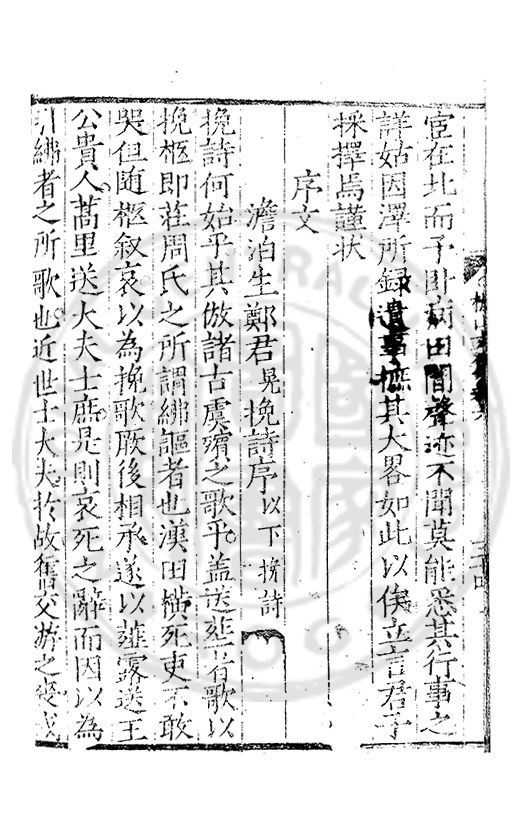 宦在北而予卧病田間聲迹不聞莫能悉其行事之
詳姑因澤所錄遺事摭其大畧如此以俟立言君子
採擇焉謹狀
序文
澹泊生鄭君晃挽詩序以下挽詩
挽詩何始乎其倣諸古虞殯之歌乎蓋送葬者歌以
挽柩即莊周氏之所謂紼謳者也漢田橫死吏不敢
哭但隨柩叙哀以為挽歌厥後相承遂以薤露送王
公貴人蒿里送大夫士庶是則哀死之辭而因以為
引紼者之所歌也近世士大夫於故舊交游之喪或